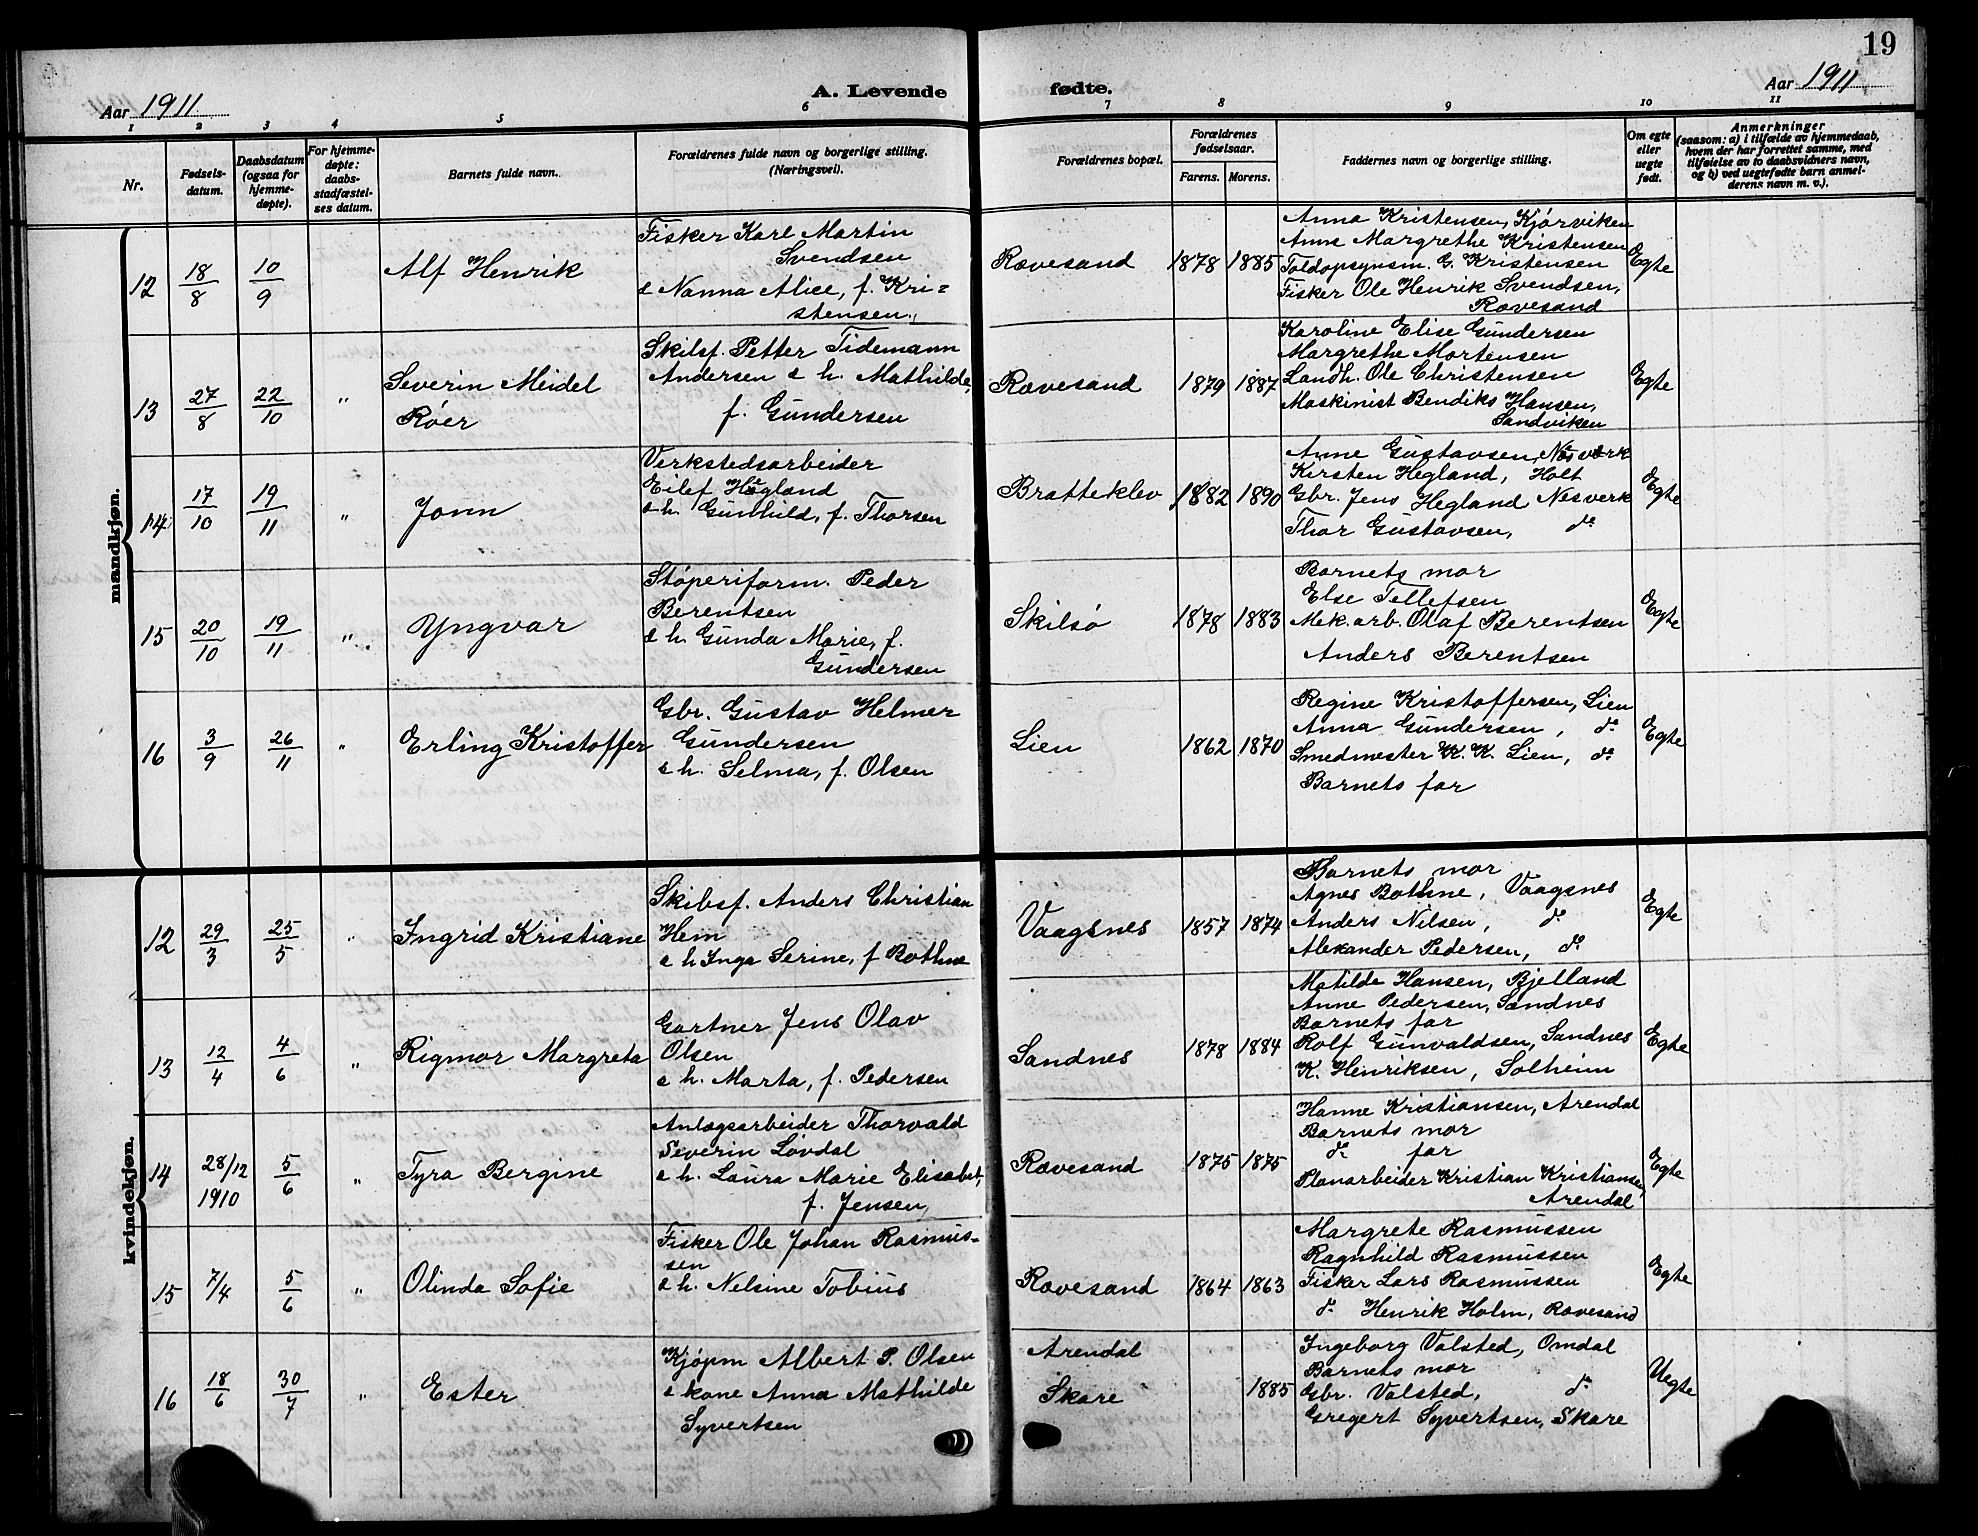 19
Aar 1911
A. Levende fødte.
Aar 1911
1 2 3 4 5 6 7 8 9 10 11
Nr.
Fødsels-
datum.
Daabsdatum
(ogsaa for
hjemme-
døpte).
For hjemme-
døpte:
daabs-
stadfæstel-
ses datum.
Barnets fulde navn.
Forældrenes fulde navn og borgerlige stilling.
(Næringsvei).
Forældrenes bopæl.
Forældrenes
fødselsaar.
Farens. Morens.
Faddernes navn og borgerlige stilling.
Om egte
eller
uegte
født.
Anmerkninger
(saasom: a) i tilfælde av hjemmedaab,
hvem der har forrettet samme, med
tilføielse av to daabsvidners navn,
og b) ved uegtefødte barn anmel-
derens navn m. v.).
mandkjøn.
12 18/8 10/9 Alf Henrik
Fisker Karl Martin
Svendsen
& Nanna Alice, f. Kri=
stensen
Rævesand 1878 1885
Anna Kristensen, Kjørviken
Anne Margrethe Kristensen
Toldopsynsm. G. Kristensen
Fisker Ole Henrik Svendsen,
Rævesand
Egte
13 27/8 22/10 "
Severin Meidel
Róer
Skibsf. Petter Tidemann
Andersen & h. Mathilde,
f. Gundersen
Rævesand 1879 1887
Karoline Elise Gundersen
Margrethe Mortensen
Landh. Ole Christensen
Maskinist Bendiks Hansen,
Sandviken
Egte
14 17/10 19/11 " Jonn
Verkstedsarbeider
Eilef Hegland
& h. Gunhild, f. Thorsen
Bratteklev 1882 1890
Anne Gustavsen, Nesverk
Kirsten Hegland, Holt
Gbr. Jens Hegland Nesverk
Thor Gustavsen, do
Egte
15 20/10 19/11 " Yngvar
Støperiform. Peder
Berentsen
& h. Gunda Marie, f.
Gundersen
Skilsø 1878 1883
Barnets mor
Else Tellefsen
Mek. arb. Olaf Berentsen
Anders Berentsen
Egte
16 3/9 26/11 " Erling Kristoffer
Gbr. Gustav Helmer
Gundersen
& h. Selma, f. Olsen
Lien 1862 1870
Regine Kristoffersen, Lien
Anna Gundersen, do
Smedmester K. K. Lien, do
Barnets far
Egte
kvindekjøn.
12 29/3 25/5 " Ingrid Kristiane
Skibsf. Anders Christian
Hem
& h Inga Serine, f Bothne
Vaagsnes 1857 1874
Barnets mor
Agnes Bothne, Vaagsnes
Anders Nilsen, do
Alexander Pedersen, do
Egte
13 12/4 4/6 " Rigmor Margreta
Gartner Jens Olav
Olsen
& h. Marta, f. Pedersen
Sandnes 1878 1884
Matilde Hansen, Bjelland
Anne Pedersen, Sandnes
Barnets far
Rolf Gunvaldsen, Sandnes
K. Henriksen, Solheim
Egte
14 28/12 1910 5/6 " Tyra Bergine
Anlægsarbeider Thorvald
Severin Løvdal
& h. Laura Marie Elisabet,
f. Jensen
Rævesand 1875 1875
Hanne Kristiansen, Arendal
Barnets mor
do far
Planarbeider Kristian Kristiansen,
Arendal
Egte
15 7/4 5/6 " Olinda Sofie
Fisker Ole Johan Rasmus-
sen
& h. Nelsine Tobius
Rævesand 1864 1863
Margrete Rasmussen
Ragnhild Rasmussen
Fisker Lars Rasmussen
do Henrik Holm, Rævesand
Egte
16 18/6 30/7 " Ester
Kjøpm Albert P. Olsen
& kone Anna Mathilde
Syvertsen
Arendal
Skare 1885
Ingeborg Valsted, Omdal
Barnets mor
Gbr. Valsted, do
Gregert Syvertsen, Skare
Uegte